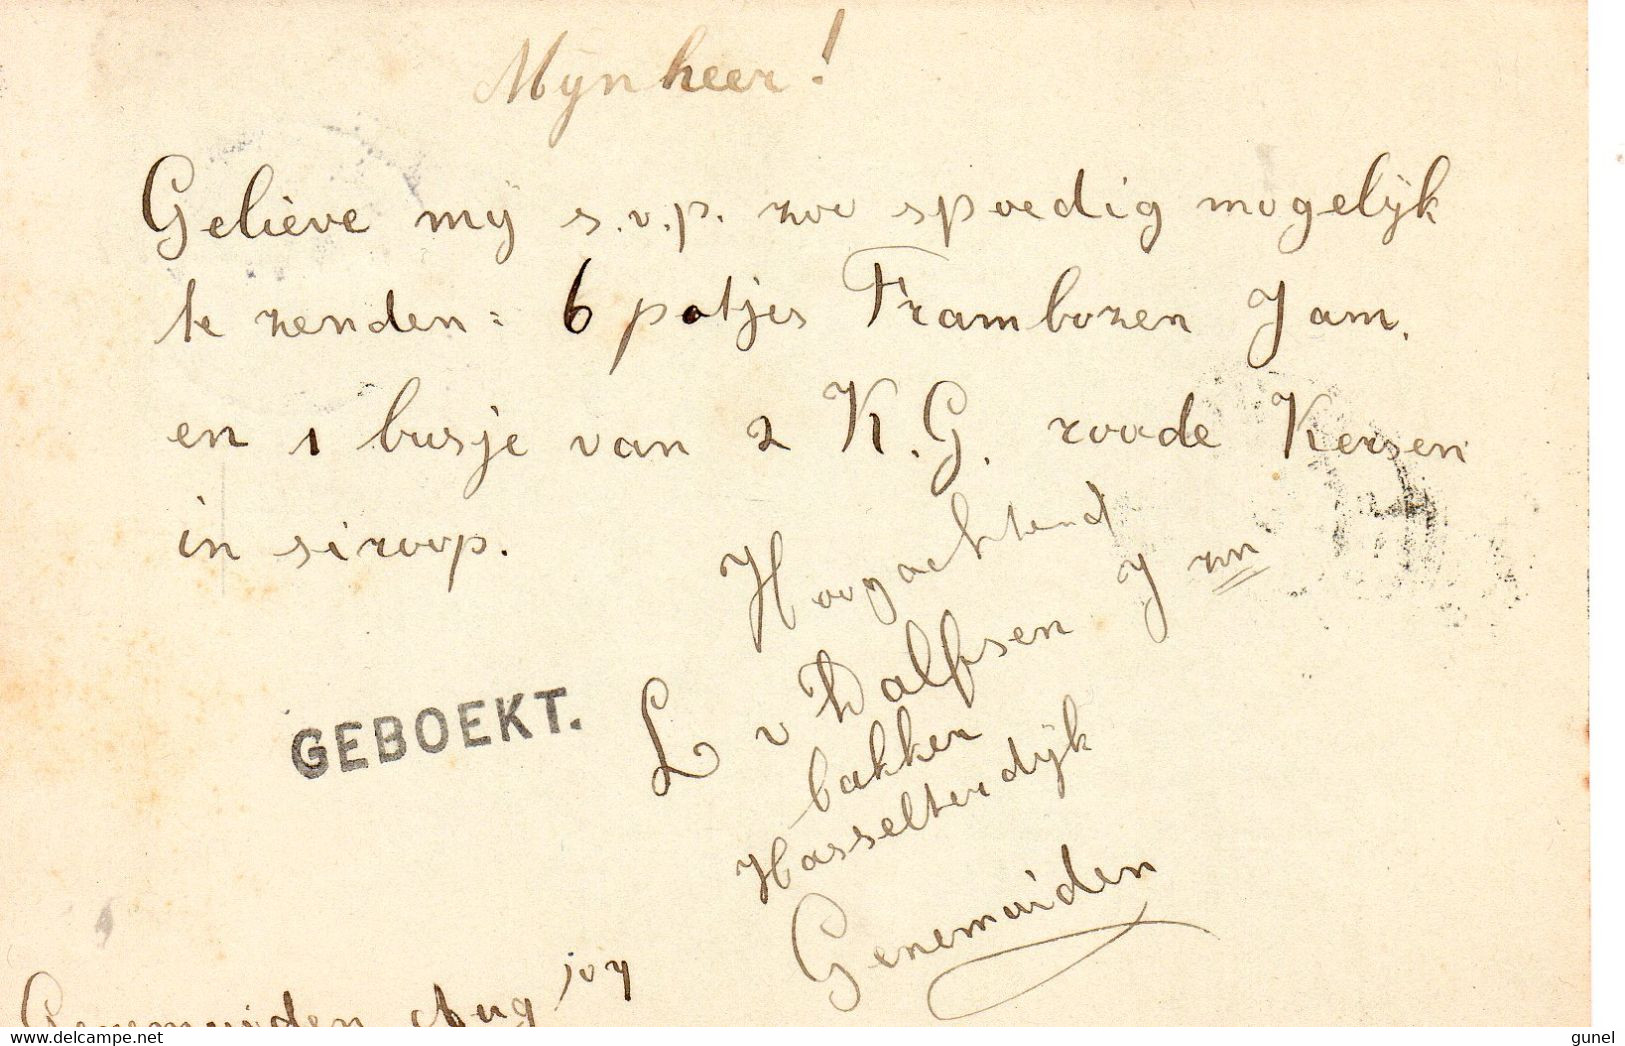 Mijnheer!
Gelieve mij s.v.p. zoo spoedig mogelijk
te zenden: 6 potjes Frambozen Jam.
en 1 busje van 2 K.G. roode Kersen
in siroop.
Hoogachtend
L v Dalfsen Jzn
bakker
Hasselterdijk
Genemuiden
GEBOEKT.
Genemuiden Aug '07
delcampe.net
gunel